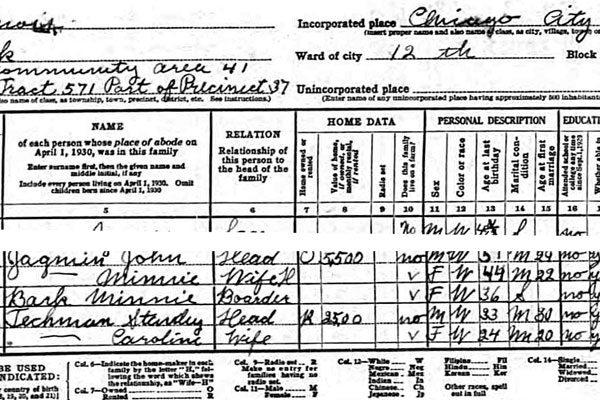 Incorporated place Chicago City
(Insert proper name and also name of class, as city, village, town or
Ward of city 12 th Block
Community area 41
Tract 571 Part of Precinct 37
Unincorporated place
(Enter name of any unincorporated place having approximately 500 inhabitants
also name of class, as township, town, precinct, district, etc. See instructions.)
NAME
of each person whose place of abode on
April 1, 1930, was in this family
Enter surname first, then the given name and
middle initial, if any
Include every person living on April 1, 1930. Omit
children born since April 1, 1930
RELATION
Relationship of
this person to
the head of the
family
HOME DATA
Home owned or rented
Value of home, if owned, or monthly rental, if rented
Radio set
Does this family live on a farm?
PERSONAL DESCRIPTION
Sex
Color or race
Age at last birthday
Marital condition
Age at first marriage
EDUCATI
Attended school or college any time since Sept. 1, 1929
Whether able to
5 6 7 8 9 10 11 12 13 14 15 16
no M W S no
Jagmin John Head O 5500 no M W 51 M 24 no
— Minnie Wife H V F W 44 M 22 no
Bark Minnie Boarder V F W 36 S no
Techman Stanley Head R 25.00 no M W 33 M 30 no
— Caroline Wife V F W 24 M 20 no
BE USED
INDICATED:
country of birth
, 19, 20, and 21)]
Col. 6—Indicate the home-maker in each
family by the letter "H," fol-
lowing the word which shows
the relationship, as "Wife—H"
Col. 7—Owned O
Rented R
Col. 9—Radio set R
Make no entry for
families having no
radio set.
Col. 11—Male M
Female F
Col. 12—White W
Negro Neg
Mexican Mex
Indian In
Chinese Ch
Japanese Jp
Filipino Fil
Hindu Hin
Korean Kor
Other races, spell
out in full
Col. 14—Single
Married
Widowed
Divorced